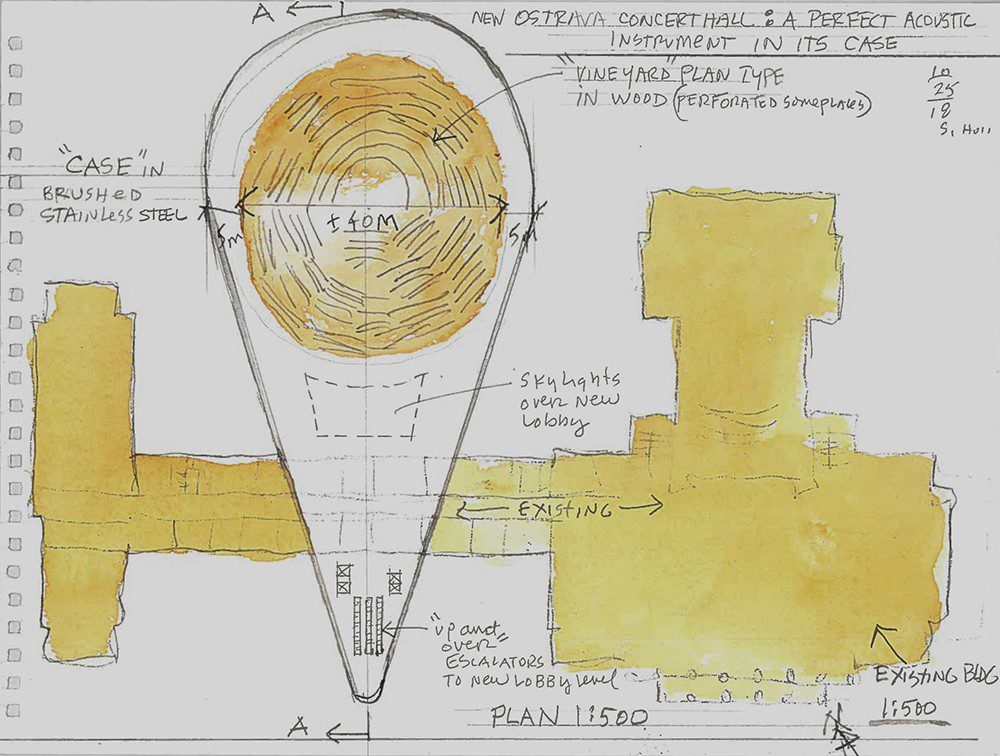 A
NEW OSTRAVA CONCERT HALL : A PERFECT ACOUSTIC
INSTRUMENT IN ITS CASE
"VINEYARD" PLAN TYPE
IN WOOD (PERFORATED SOMEPLACES)
10
25
18
S. Holl
"CASE" IN
BRUSHED
STAINLESS STEEL
5m
± 40M
5m
SKYLIGHTS
OVER NEW
LOBBY
EXISTING
"UP and
OVER"
ESCALATORS
TO NEW LOBBY LEVEL
EXISTING BLDG
1:500
A
PLAN 1:500
N